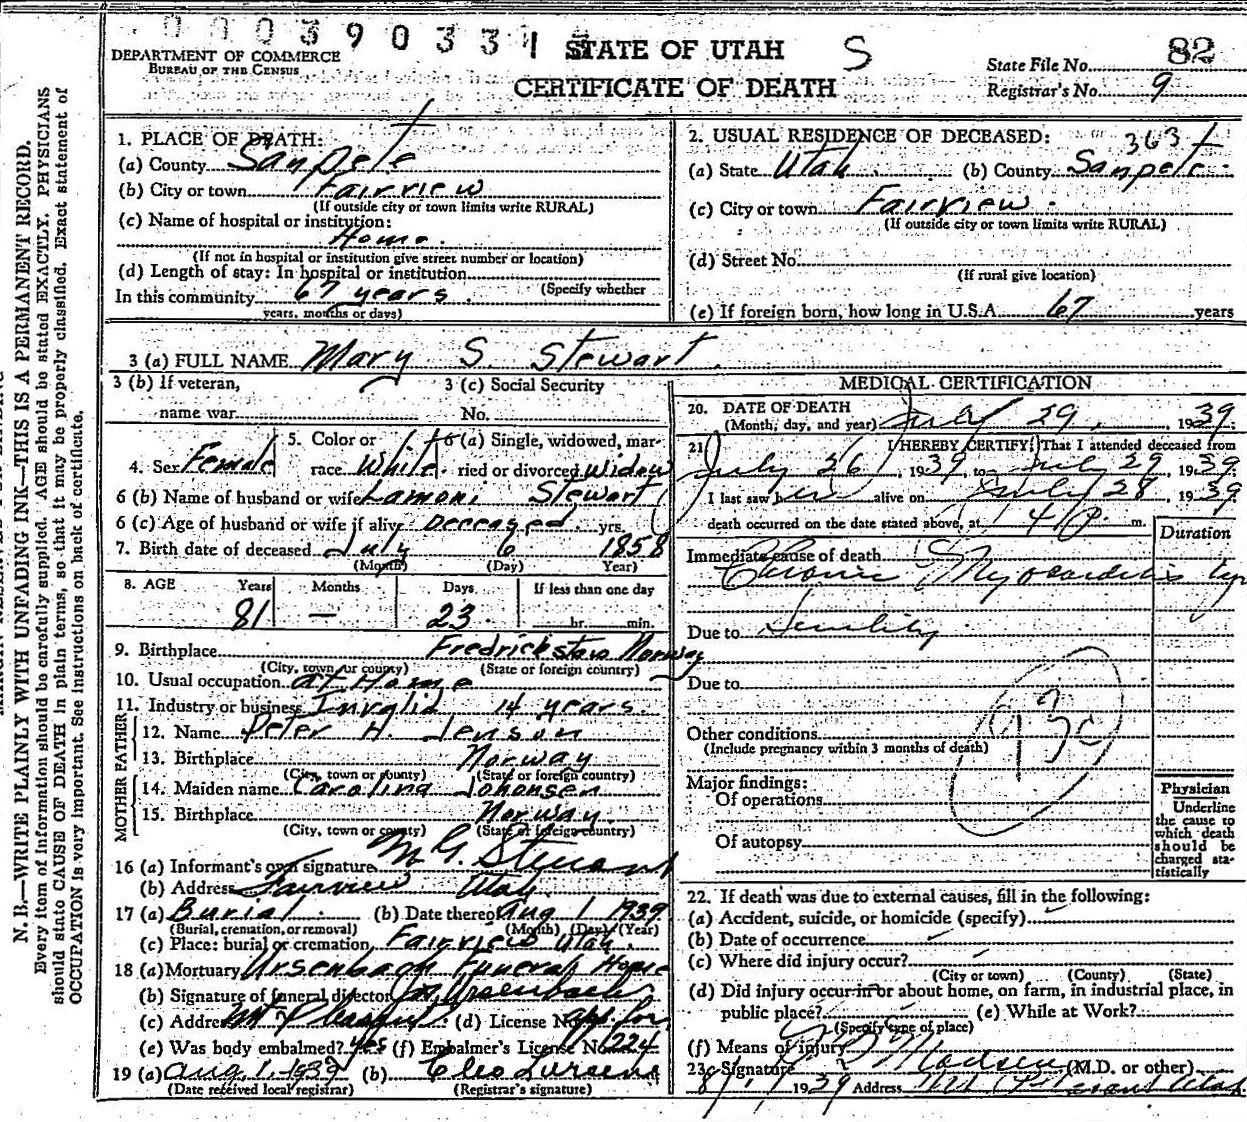 00039033
STATE OF UTAH S
CERTIFICATE OF DEATH
DEPARTMENT OF COMMERCE
BUREAU OF THE CENSUS
State File No. 82
Registrar's No. 9
N. B.—WRITE PLAINLY WITH UNFADING INK—THIS IS A PERMANENT RECORD.
Every item of information should be carefully supplied. AGE should be stated EXACTLY. PHYSICIANS
should state CAUSE OF DEATH in plain terms, so that it may be properly classified. Exact statement of
OCCUPATION is very important. See instructions on back of certificate.
1. PLACE OF DEATH:
(a) County Sanpete
(b) City or town Fairview
(If outside city or town limits write RURAL)
(c) Name of hospital or institution:
Home.
(If not in hospital or institution give street number or location)
(d) Length of stay: In hospital or institution
(Specify whether
In this community 67 years.
years, months or days)
2. USUAL RESIDENCE OF DECEASED: 363
(a) State Utah. (b) County Sanpete
(c) City or town Fairview.
(If outside city or town limits write RURAL)
(d) Street No.
(If rural give location)
(e) If foreign born, how long in U.S.A. 67 years
3 (a) FULL NAME Mary S. Stewart.
3 (b) If veteran, 3 (c) Social Security
name war No.
4. Sex Female 5. Color or race White 6 (a) Single, widowed, married or divorced widow
6 (b) Name of husband or wife Lamoni Stewart
6 (c) Age of husband or wife if alive Deceased. yrs.
7. Birth date of deceased July 6 1858
(Month) (Day) Year)
8. AGE Years Months Days If less than one day
81 — 23 hr. min.
9. Birthplace Fredrickstaw Norway
(City, town or county) (State or foreign country)
10. Usual occupation at Home
11. Industry or business Invalid 14 years.
FATHER
12. Name Peter H. Jenson
13. Birthplace Norway
(City, town or county) (State or foreign country)
MOTHER
14. Maiden name Carolina Johansen
15. Birthplace Norway.
(City, town or county) (State or foreign country)
16 (a) Informant's own signature M G. Stewart
(b) Address Fairview Utah.
17 (a) Burial. (b) Date thereof Aug 1 1939
(Burial, cremation, or removal) (Month) (Day) (Year)
(c) Place: burial or cremation Fairview Utah.
18 (a) Mortuary Ursenbach Funeral Home
(b) Signature of funeral director Ursenbach
(c) Address Mt Pleasant. (d) License No. app. for
(e) Was body embalmed? yes (f) Embalmer's License No. 224
19 (a) Aug. 1. 1939 (b) Cleo
(Date received local registrar) (Registrar's signature)
MEDICAL CERTIFICATION
20. DATE OF DEATH
(Month, day, and year) July 29, 1939.
21 I HEREBY CERTIFY, That I attended deceased from
July 26, 1939 to July 29 1939.
I last saw her alive on July 28, 1939
death occurred on the date stated above, at 4 P m.
Duration
Immediate cause of death
Chronic Myocarditis
Due to Senility
Due to
Other conditions
(Include pregnancy within 3 months of death)
Major findings:
Of operations
Of autopsy
Physician
Underline
the cause to
which death
should be
charged sta-
tistically
22. If death was due to external causes, fill in the following:
(a) Accident, suicide, or homicide (specify)
(b) Date of occurrence
(c) Where did injury occur?
(City or town) (County) (State)
(d) Did injury occur in or about home, on farm, in industrial place, in
public place? (e) While at Work?
(Specify type of place)
(f) Means of injury
23. Signature Madsen (M.D. or other)
8/1/1939 Address Mt Pleasant Utah